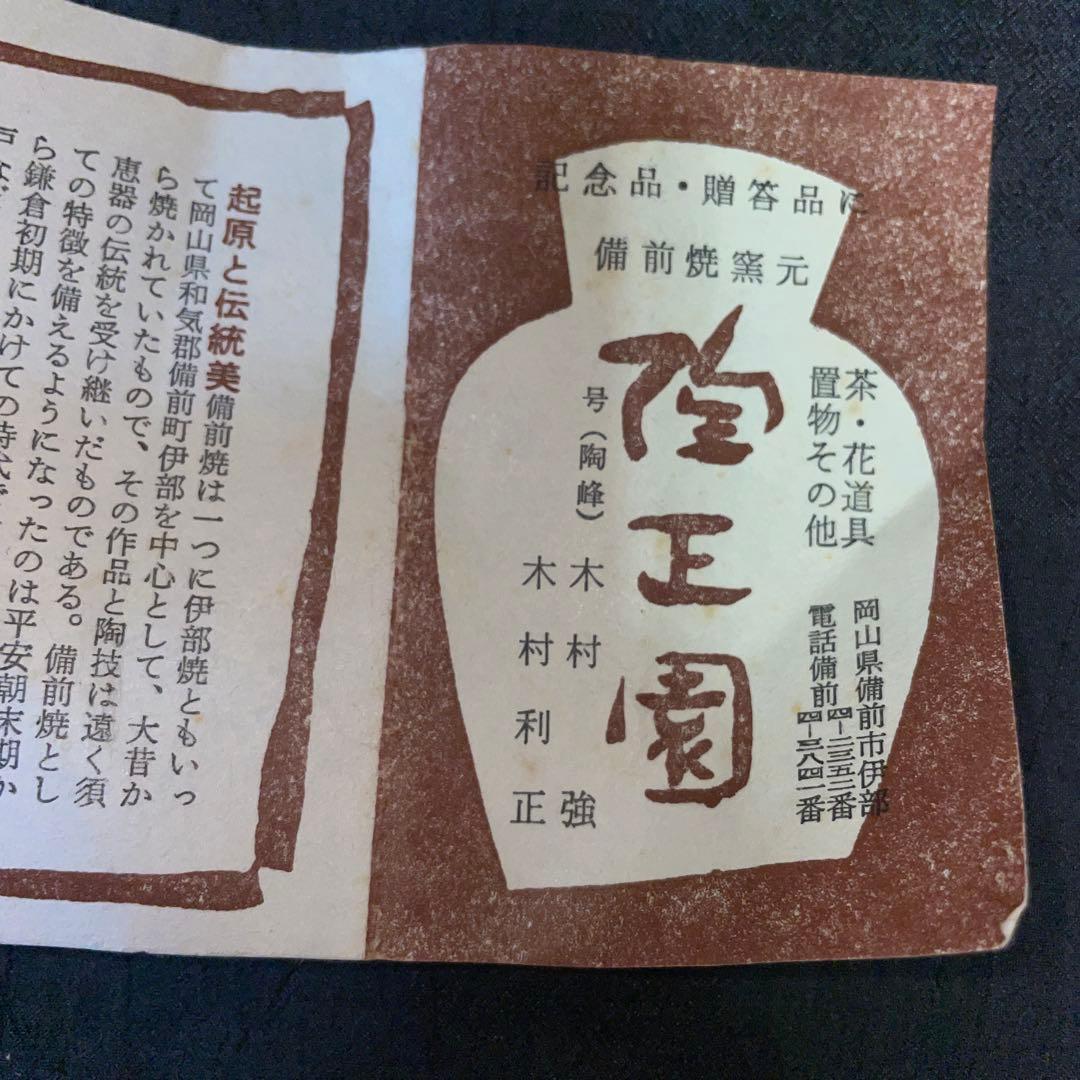 記念品・贈答品に
備前焼窯元
茶・花道具
置物その他
陶正園
号(陶峰) 木村強
木村利正
岡山県備前市伊部
電話備前 四―二三五二番
四―三八四一番
起原と伝統美 備前焼は一つに伊部焼ともいっ
て岡山県和気郡備前町伊部を中心として、大昔か
ら焼かれていたもので、その作品と陶技は遠く須
恵器の伝統を受け継いだものである。備前焼とし
ての特徴を備えるようになったのは平安朝末期か
ら鎌倉初期にかけての